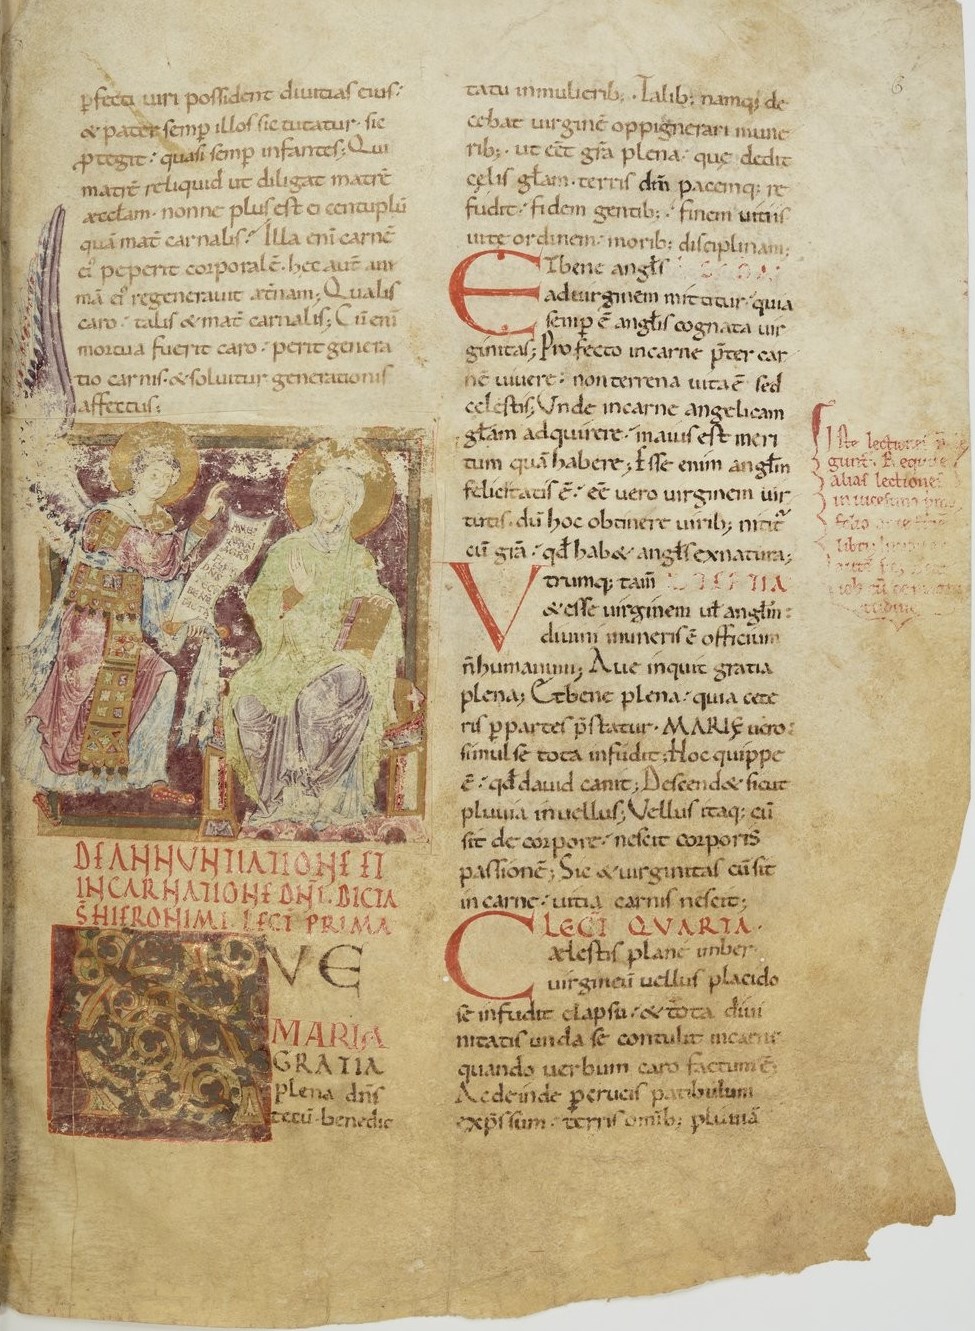 ꝑfecti uiri possident diuitias eius·
& pater semꝑ illos sic tutatur· sic
ꝓtegit· quasi semꝑ infantes; Qui
matrē reliquid ut diligat matrē
æccłam· nonne plus est ei centuplū
quā mat̄ carnalis· Illa eni carnē
ei peperit corporalē· hec aut̄ ani
mā ei regenerauit æt̄nam; Qualis
caro· talis & mat̄ carnalis; Cū eni
mortua fuerit caro· perit genera
tio carnis· & soluitur generationis
affectus;
DE ANNUNTIATIONE ET
INCARNATIONE DN̄I· DICTA
S̄ HIERONIMI· LECT̄ PRIMA
VE
MARIA
GRATIA
plena dn̄s
tecū· benedic
tatu in mulierib;· Talib; namq; de
cebat uirginē oppignerari mune
rib;· ut eēt gr̄a plena· quę dedit
cęlis głam· terris dm̄ pacemq; re
fudit· fidem gentib;· finem uitiis
uitę ordinem· morib; disciplinam;
Et bene angłs
ad uirginem mittitur· quia
semꝑ ē angłis cognata uir
ginitas; Profecto in carne p̄ter car
nē uiuere· non terrena uita ē sed
cęlestis; Vnde in carne angelicam
głam adquirere· maius est meri
tum quā habere; Esse enim angłm
felicitatis ē· eē uero uirginem uir
tutis· dū hoc obtinere uirib; nitit̄
cū gr̄a· qđ hab& angłs ex natura;
Vtrumq; tam̄
& esse uirginem uł angłm·
diuini muneris ē officium
n̄ humanum; Aue inquit gratia
plena; Et bene plena· quia cete
ris ꝑ partes p̄statur· MARIĘ uero·
simul se tota infudit· Hoc quippe
ē· qđ dauid canit; Descend& sicut
pluuia in uellus; Vellus itaq; cū
sit de corpore· nescit corporis
passionē; Sic & uirginitas cū sit
in carne· uitia carnis nescit;
LECT̄ QVARTA·
Cælestis plane imber
uirgineū uellus placido
se infudit elapsu· & tota diui
nitatis unda se contulit in carne
quando uerbum caro factum ē;
Ac deinde ꝑ crucis patibulum
exp̄ssum· terris omīb; pluuiā
6
Iste lectiones
alias lectiones